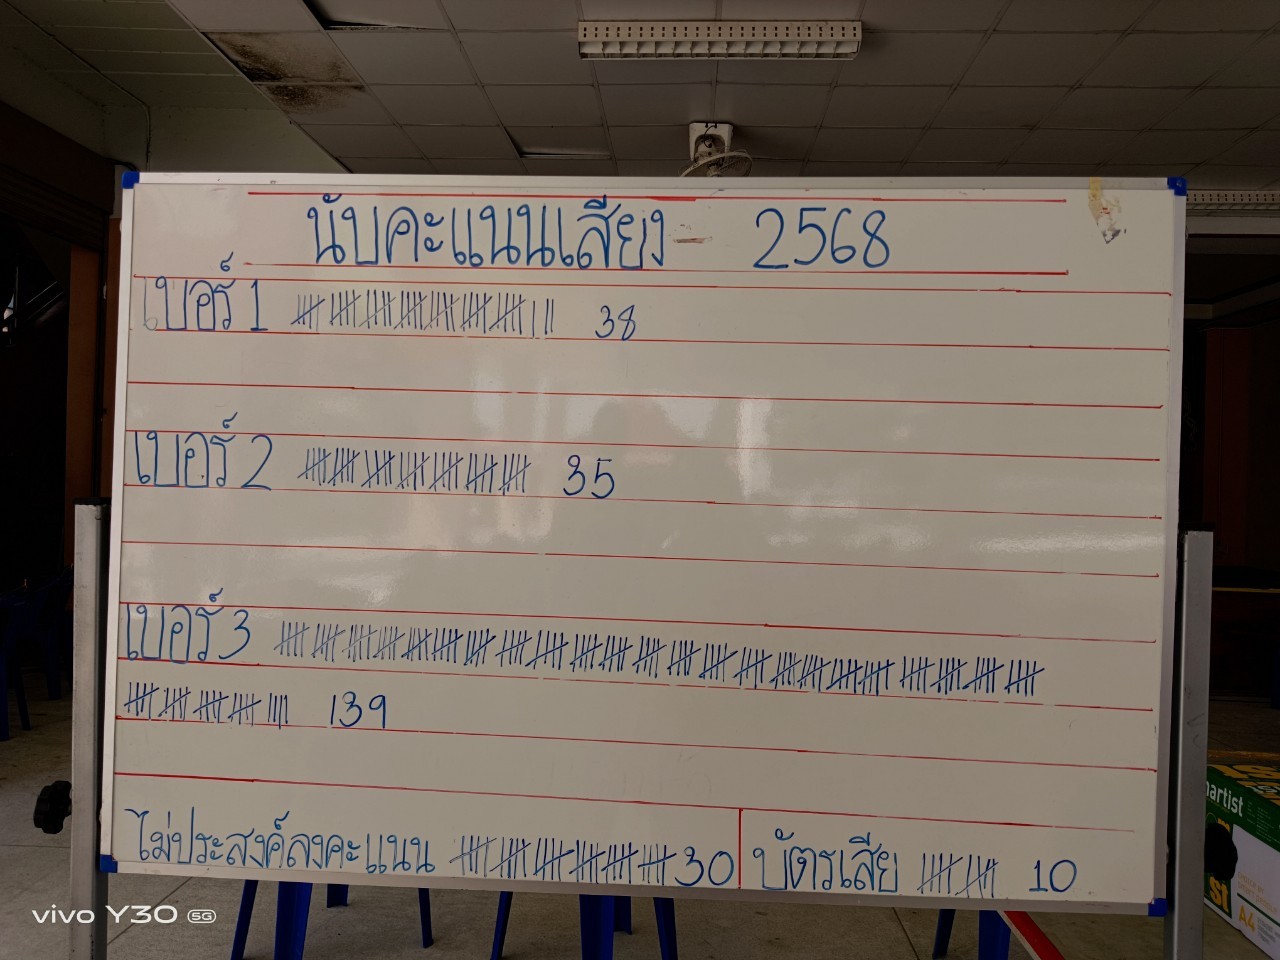 นับคะแนนเสียง - 2568
เบอร์ 1 38
เบอร์ 2 35
เบอร์ 3
139
ไม่ประสงค์ลงคะแนน 30 บัตรเสีย 10
vivo Y30 5G
A4